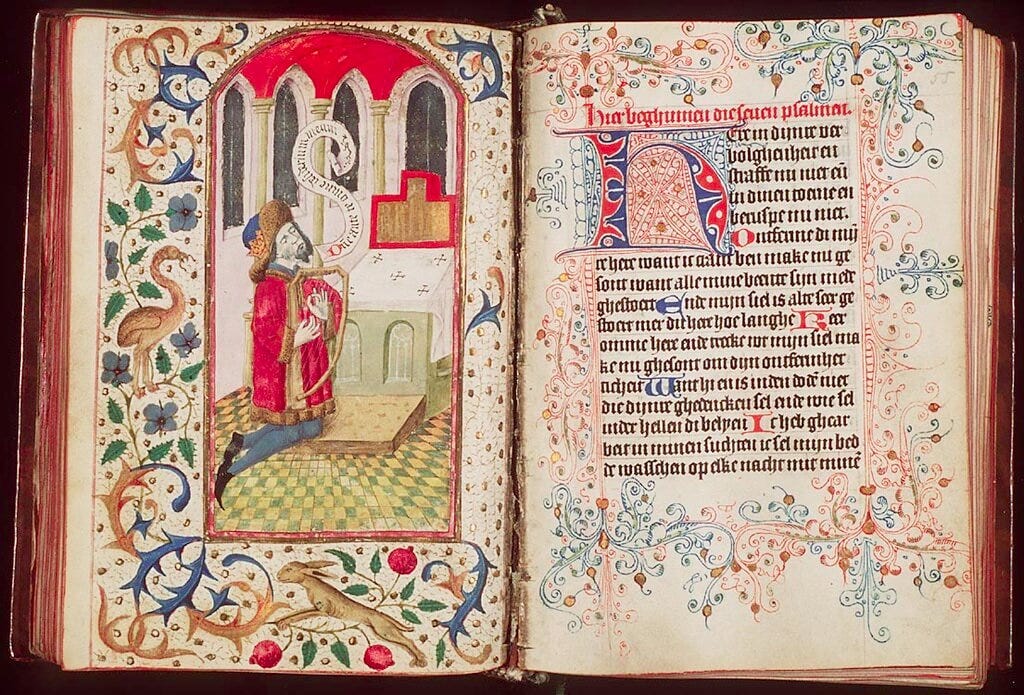 Hier beghinnen die seuen psalmen.
Here in dijnre ver
bolghenheit en
straffe mi niet en̄
in dinen toerne en
berispe mi niet.
Ontferme di mijn
re here want ic cranc ben make mi ge
sont want alle mine beente sijn mede
ghestoert Ende mijn siel is alte seer ge
stoert mer du here hoe langhe Keer
omme here ende trecke wt mijn siel ma
ke mi ghesont om dijn ontfermher
ticheit Want hi en is inden dode niet
die dijnre ghedencken sel ende wie sel
inder hellen di belyen Ic heb ghear
beit in minen suchten ic sel mijn bed
de wasschen op elke nacht mit minē